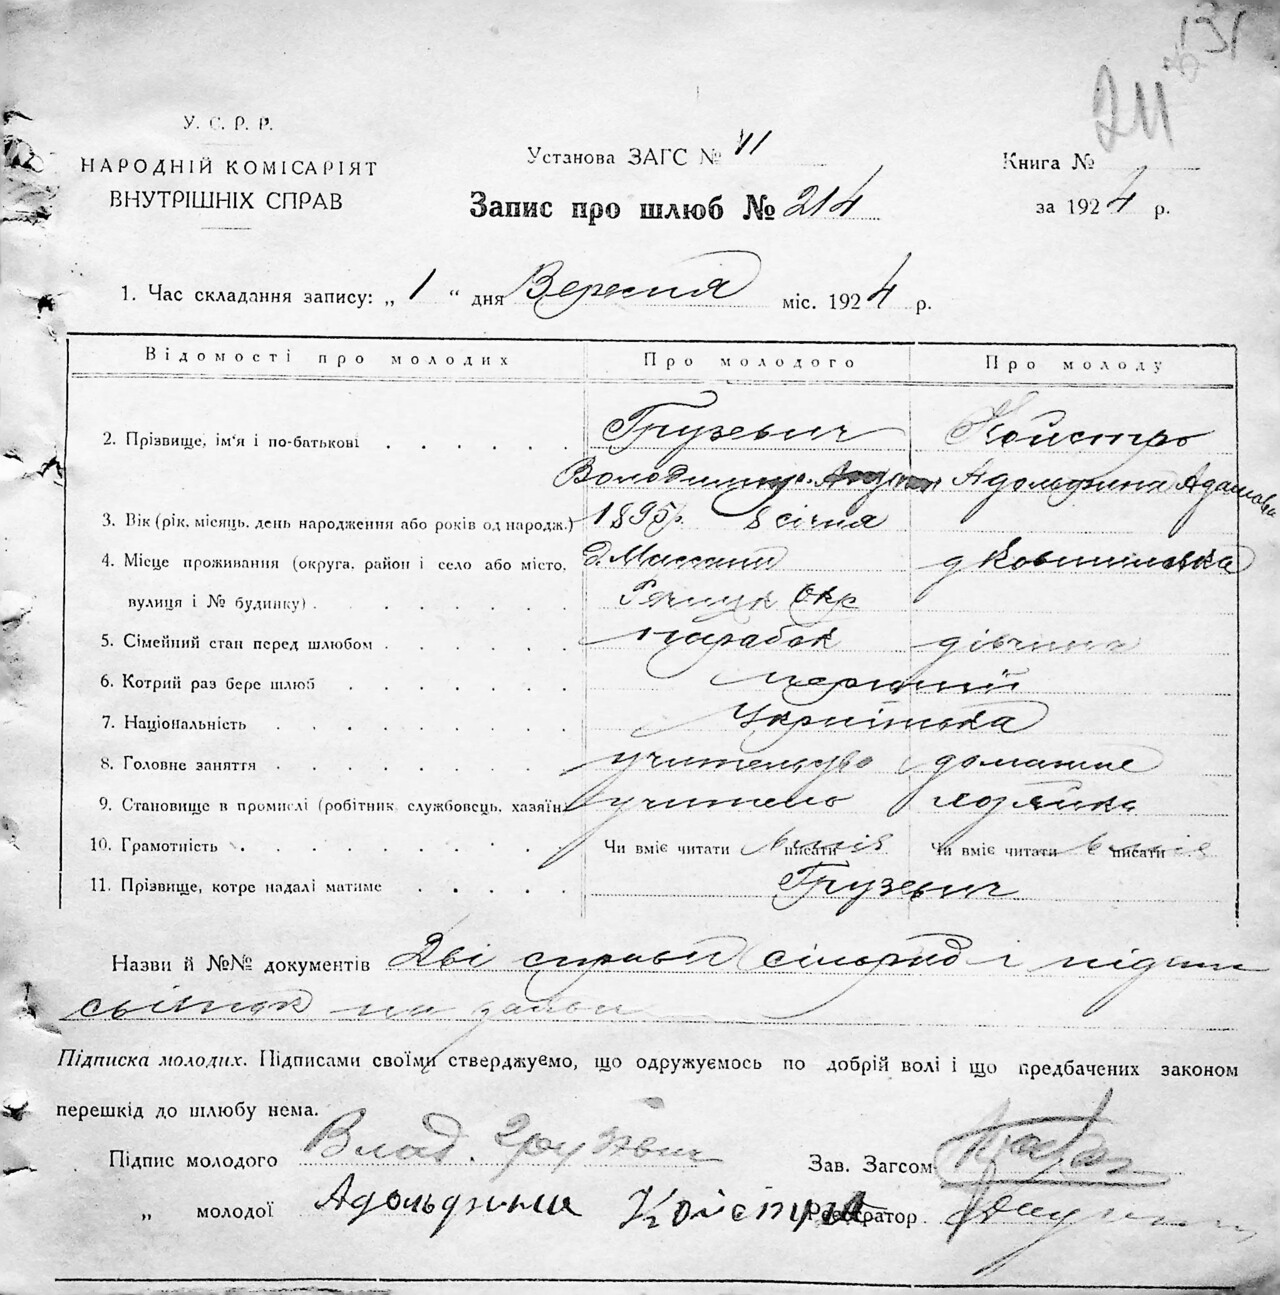 211
У. С. Р. Р.
НАРОДНІЙ КОМІСАРІЯТ
ВНУТРІШНІХ СПРАВ
Установа ЗАГС №
Запис про шлюб № 214
Книга №
за 1924 р.
1. Час складання запису: „ 1 “ дня Вересня міс. 1924 р.
Відомості про молодих Про молодого Про молоду
2. Прізвище, ім'я і по-батькові Грузевич Койстро
Володимир Адольфина Адамовна
3. Вік (рік, місяць, день народження або років од народж.) 1895 р. 8 січня
4. Місце проживання (округа, район і село або місто, д. Массани
вулиця і № будинку) Окр
5. Сімейний стан перед шлюбом парабок дівчина
6. Котрий раз бере шлюб перший
7. Національність
8. Головне заняття учительство домашнє
9. Становище в промислі (робітник, службовець, хазяїн учитель
10. Грамотність Чи вміє читати писати Чи вміє читати писати
11. Прізвище, котре надалі матиме Грузевич
Назви й №№ документів Дві справки і
Підписка молодих. Підписами своїми стверджуємо, що одружуємось по добрій волі і що предбачених законом
перешкід до шлюбу нема.
Підпис молодого Влад. Грузевич Зав. Загсом
„ молодої Адольфина Койстро Реєстратор